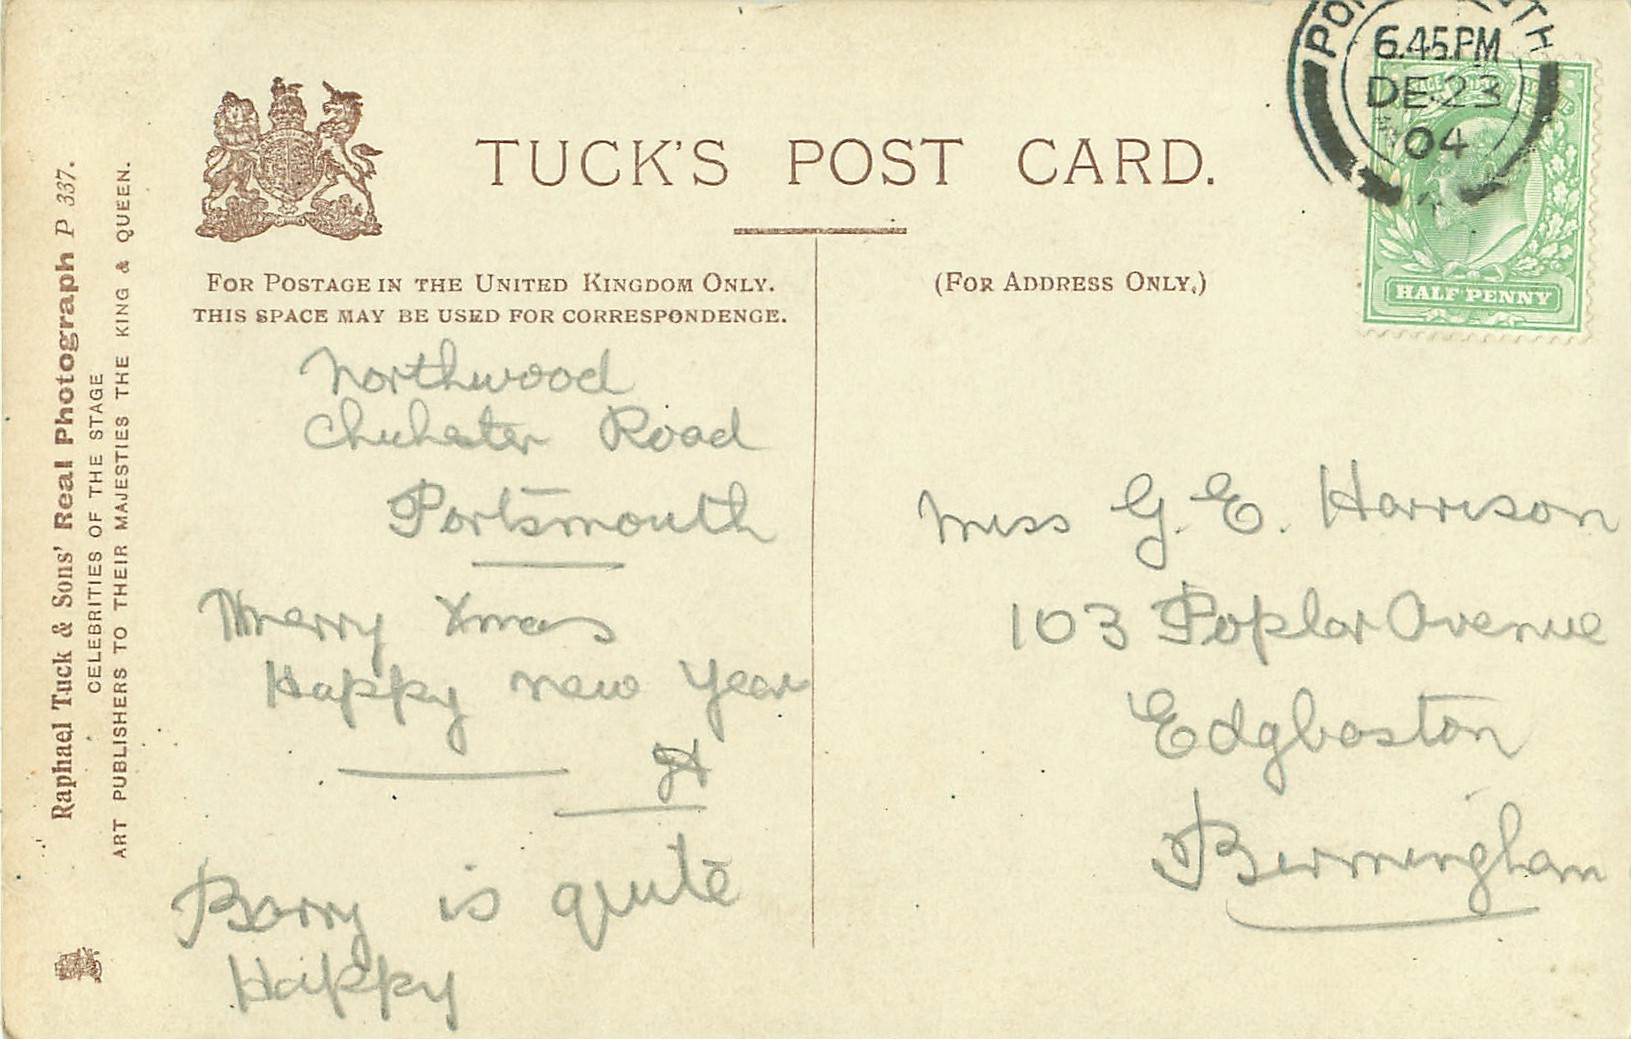 TUCK'S POST CARD.
FOR POSTAGE IN THE UNITED KINGDOM ONLY.
THIS SPACE MAY BE USED FOR CORRESPONDENCE.
(FOR ADDRESS ONLY.)
Northwood
Chichester Road
Portsmouth
Merry Xmas
Happy new Year
H
Barry is quite
Happy
Miss G. E. Harrison
103 Poplar Avenue
Edgbaston
Birmingham
6.45PM
DE 23
04
HALF PENNY
Raphael Tuck & Sons' Real Photograph P 337.
CELEBRITIES OF THE STAGE
ART PUBLISHERS TO THEIR MAJESTIES THE KING & QUEEN.